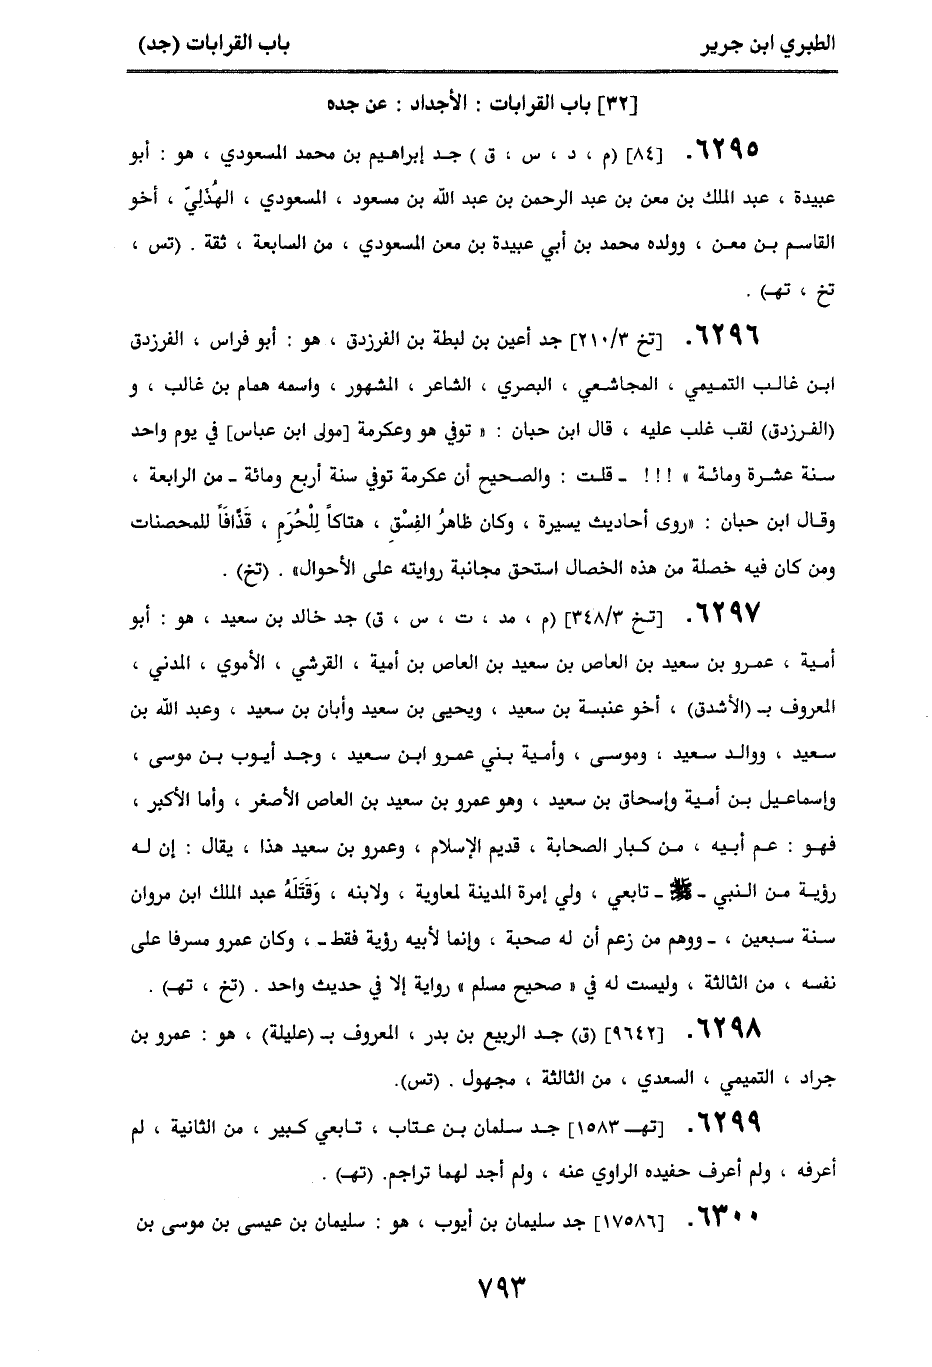 الطبري ابن جرير باب القرابات (جد)
[٣٢] باب القرابات : الأجداد : عن جده
٦٢٩٥. [٨٤] (م ، د ، س ، ق ) جـد إبراهيم بن محمد المسعودي ، هو : أبو
عبيدة ، عبد الملك بن معن بن عبد الرحمن بن عبد الله بن مسعود ، المسعودي ، الهُذَلِيّ ، أخو
القاسم بن معن ، وولده محمد بن أبي عبيدة بن معن المسعودي ، من السابعة ، ثقة . (تس ،
تخ ، تهـ) .
٦٢٩٦. [تخ ٢١٠/٣] جد أعين بن لبطة بن الفرزدق ، هو : أبو فراس ، الفرزدق
ابن غالب التميمي ، المجاشعي ، البصري ، الشاعر ، المشهور ، واسمه همام بن غالب ، و
(الفرزدق) لقب غلب عليه ، قال ابن حبان : « توفي هو وعكرمة [مولى ابن عباس] في يوم واحد
سنة عشرة ومائة » !!! ـ قلت : والصحيح أن عكرمة توفي سنة أربع ومائة ـ من الرابعة ،
وقال ابن حبان : «روى أحاديث يسيرة ، وكان ظاهرُ الفِسْقِ ، هتاكاً لِلْحُرَمِ ، قَذَّافَاً للمحصنات
ومن كان فيه خصلة من هذه الخصال استحق مجانبة روايته على الأحوال» . (تخ) .
٦٢٩٧. [تخ ٣٤٨/٣] (م ، مد ، ت ، س ، ق) جد خالد بن سعيد ، هو : أبو
أمية ، عمرو بن سعيد بن العاص بن سعيد بن العاص بن أمية ، القرشي ، الأموي ، المدني ،
المعروف بـ (الأشدق) ، أخو عنبسة بن سعيد ، ويحيى بن سعيد وأبان بن سعيد ، وعبد الله بن
سعيد ، ووالد سعيد ، وموسى ، وأمية بني عمرو ابن سعيد ، وجد أيوب بن موسى ،
وإسماعيل بن أمية وإسحاق بن سعيد ، وهو عمرو بن سعيد بن العاص الأصغر ، وأما الأكبر ،
فهو : عم أبيه ، من كبار الصحابة ، قديم الإسلام ، وعمرو بن سعيد هذا ، يقال : إن له
رؤية من النبي ـ ﷺ ـ تابعي ، ولي إمرة المدينة لمعاوية ، ولابنه ، وَقَتَلَهُ عبد الملك ابن مروان
سنة سبعين ، ـ ووهم من زعم أن له صحبة ، وإنما لأبيه رؤية فقط ـ ، وكان عمرو مسرفا على
نفسه ، من الثالثة ، وليست له في « صحيح مسلم » رواية إلا في حديث واحد . (تخ ، تهـ) .
٦٢٩٨. [٩٦٤٢] (ق) جد الربيع بن بدر ، المعروف بـ (عليلة) ، هو : عمرو بن
جراد ، التميمي ، السعدي ، من الثالثة ، مجهول . (تس).
٦٢٩٩. [تهـ ١٥٨٣] جد سلمان بن عتاب ، تابعي كبير ، من الثانية ، لم
أعرفه ، ولم أعرف حفيده الراوي عنه ، ولم أجد لهما تراجم. (تهـ) .
٦٣٠٠. [١٧٥٨٦] جد سليمان بن أيوب ، هو : سليمان بن عيسى بن موسى بن
٧٩٣